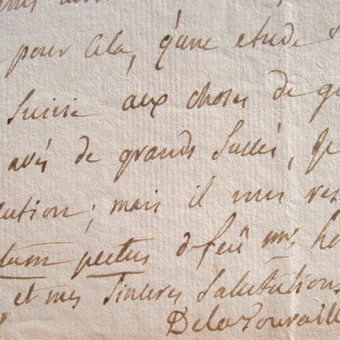 pour cela, qu'une etude
suivie aux choses de gu
avés de grands succès, Je
lution; mais il me res
tum pectus
et mes sinceres Salutations
Delatouraill